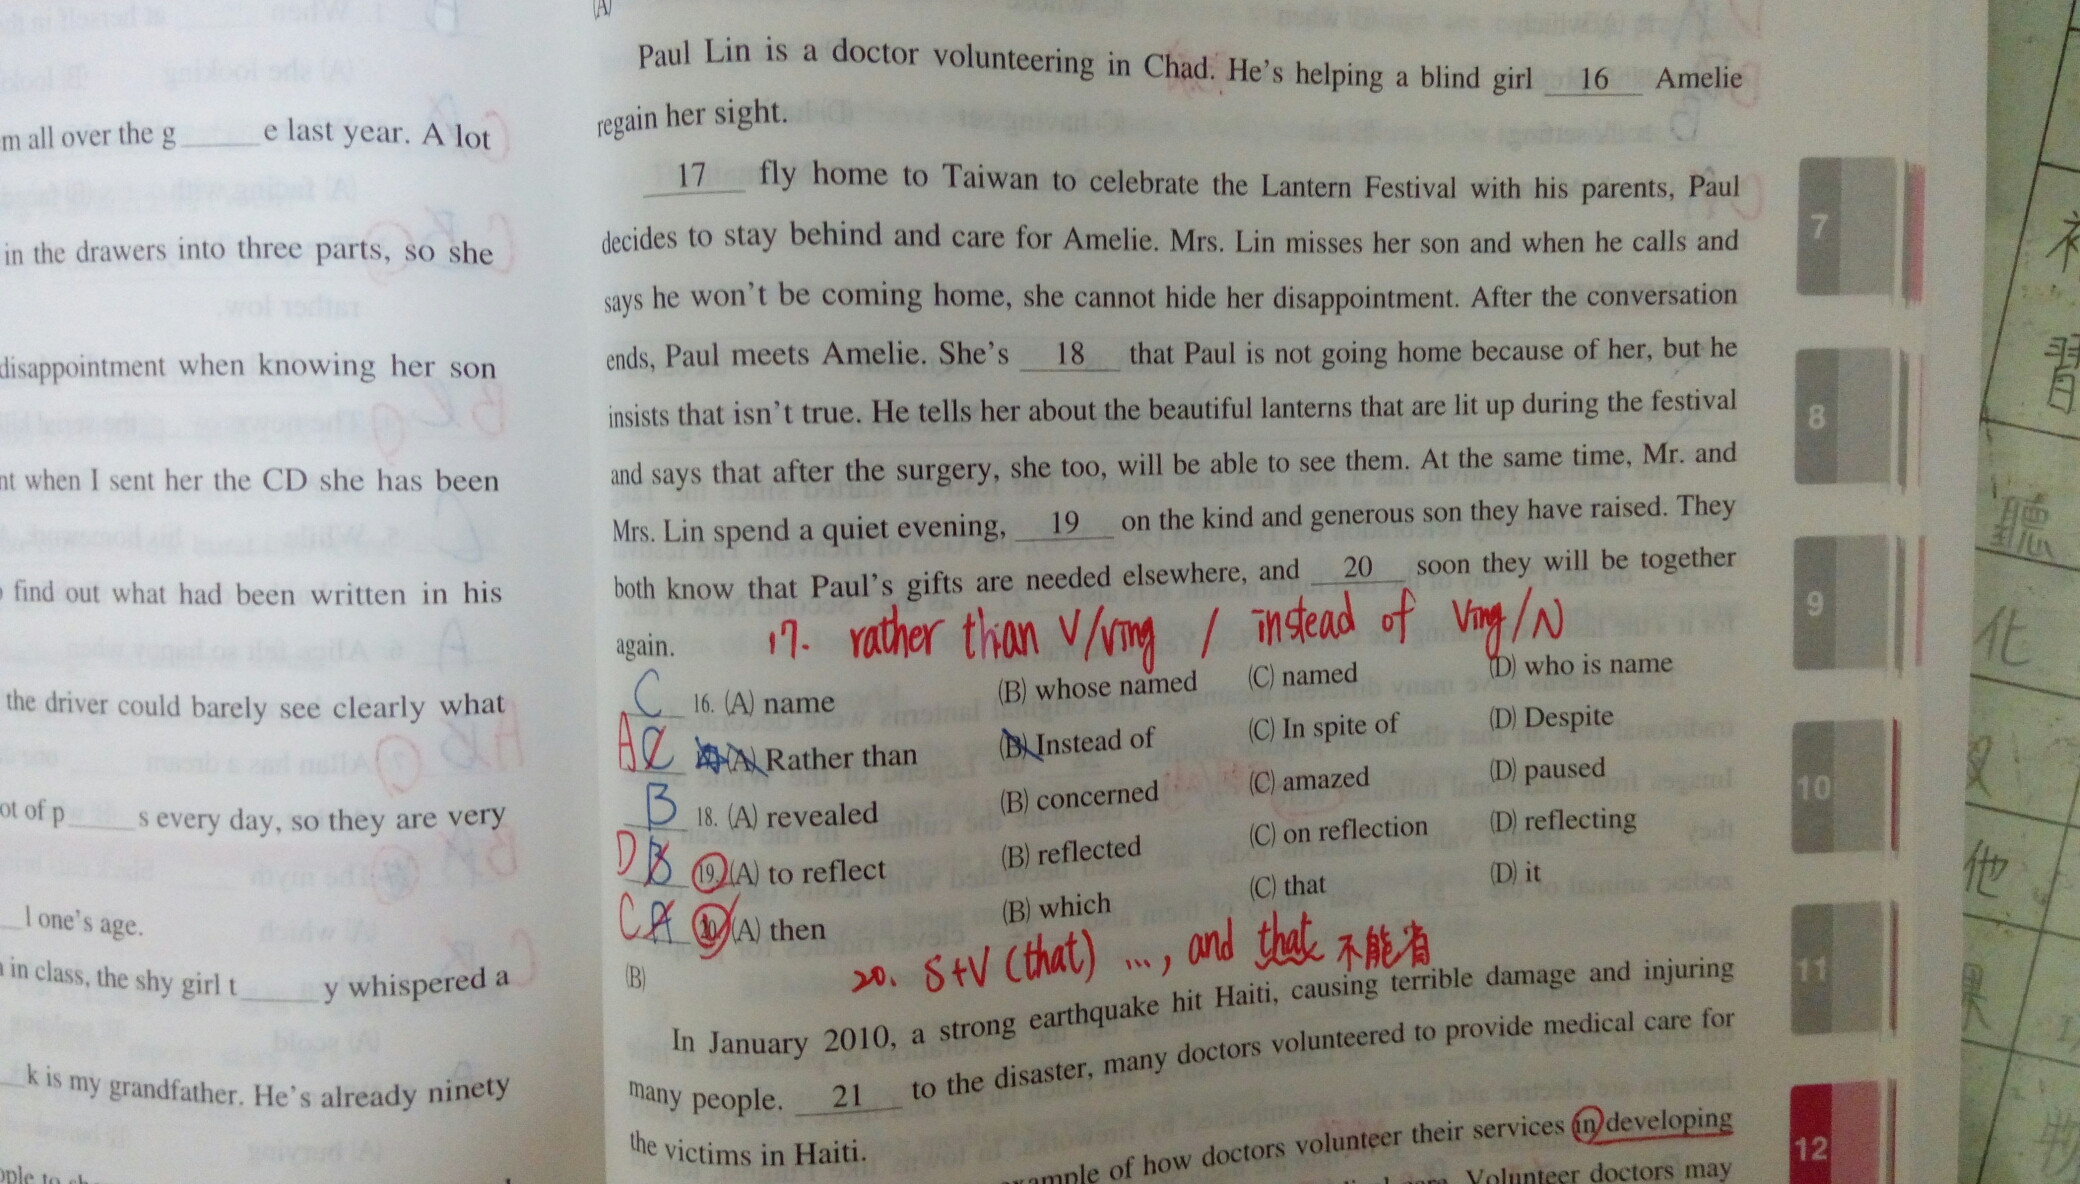 m all over the g____e last year. A lot
in the drawers into three parts, so she
disappointment when knowing her son
nt when I sent her the CD she has been
find out what had been written in his
the driver could barely see clearly what
ot of p____s every day, so they are very
l one's age.
in class, the shy girl t____y whispered a
k is my grandfather. He's already ninety
(A)
Paul Lin is a doctor volunteering in Chad. He's helping a blind girl 16 Amelie
regain her sight.
17 fly home to Taiwan to celebrate the Lantern Festival with his parents, Paul
decides to stay behind and care for Amelie. Mrs. Lin misses her son and when he calls and
says he won't be coming home, she cannot hide her disappointment. After the conversation
ends, Paul meets Amelie. She's 18 that Paul is not going home because of her, but he
insists that isn't true. He tells her about the beautiful lanterns that are lit up during the festival
and says that after the surgery, she too, will be able to see them. At the same time, Mr. and
Mrs. Lin spend a quiet evening, 19 on the kind and generous son they have raised. They
both know that Paul's gifts are needed elsewhere, and 20 soon they will be together
again. 17. rather than V/Ving / instead of Ving/N
C 16. (A) name (B) whose named (C) named (D) who is name
A C (A) Rather than (B) Instead of (C) In spite of (D) Despite
B 18. (A) revealed (B) concerned (C) amazed (D) paused
D B 19. (A) to reflect (B) reflected (C) on reflection (D) reflecting
C A 20. (A) then (B) which (C) that (D) it
20. S+V (that) ..., and that 不能省
(B)
In January 2010, a strong earthquake hit Haiti, causing terrible damage and injuring
many people. 21 to the disaster, many doctors volunteered to provide medical care for
the victims in Haiti.
of how doctors volunteer their services in developing
Volunteer doctors may
7
8
9
10
11
12
習
聽
化
他
果
物